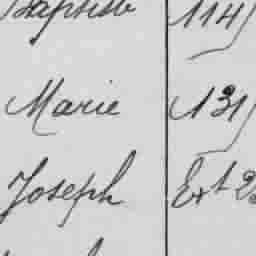 Baptiste 114
Marie 131
Joseph Ext 2